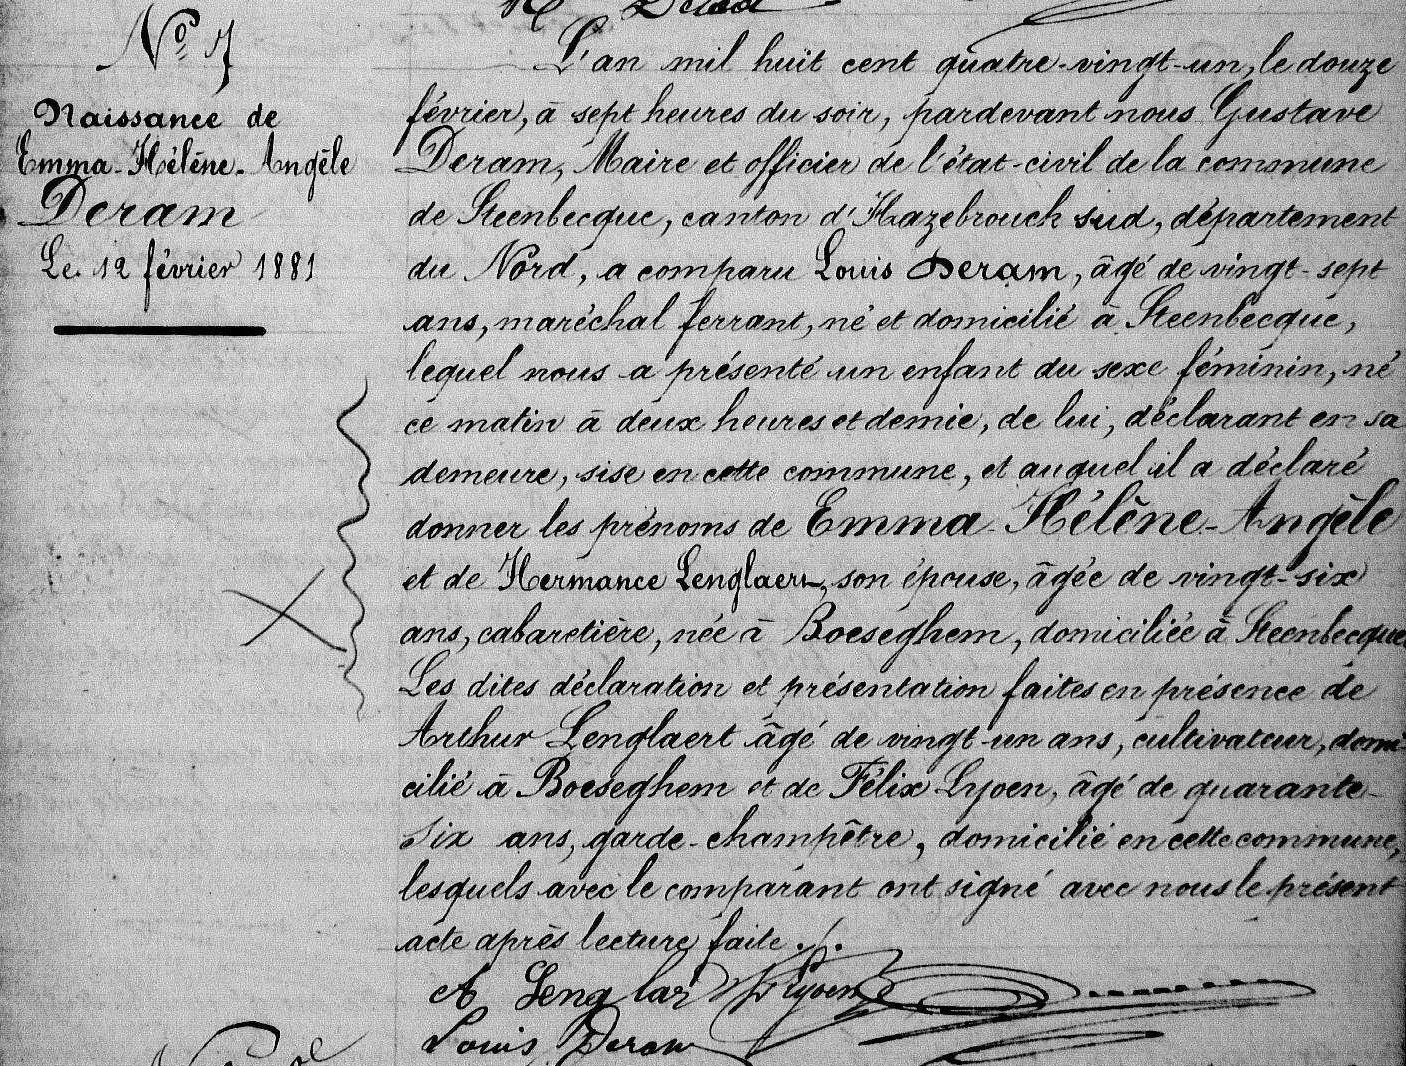 Nº 7
Naissance de
Emma-Hélène-Angèle
Deram
Le 12 février 1881
L'an mil huit cent quatre-vingt-un, le douze
février, à sept heures du soir, pardevant nous Gustave
Deram, Maire et officier de l'état-civil de la commune
de Steenbecque, canton d'Hazebrouck sud, département
du Nord, a comparu Louis Deram, âgé de vingt-sept
ans, maréchal ferrant, né et domicilié à Steenbecque,
lequel nous a présenté un enfant du sexe féminin, né
ce matin à deux heures et demie, de lui, déclarant en sa
demeure, sise en cette commune, et auquel il a déclaré
donner les prénoms de Emma-Hélène-Angèle
et de Hermance Lenglaert, son épouse, âgée de vingt-six
ans, cabaretière, née à Boeseghem, domiciliée à Steenbecque.
Les dites déclaration et présentation faites en présence de
Arthur Lenglaert âgé de vingt-un ans, cultivateur, domi-
cilié à Boeseghem et de Félix Lyoen, âgé de quarante-
six ans, garde-champêtre, domicilié en cette commune,
lesquels avec le comparant ont signé avec nous le présent
acte après lecture faite ./.
A Lenglar Lyoen
Louis Deram